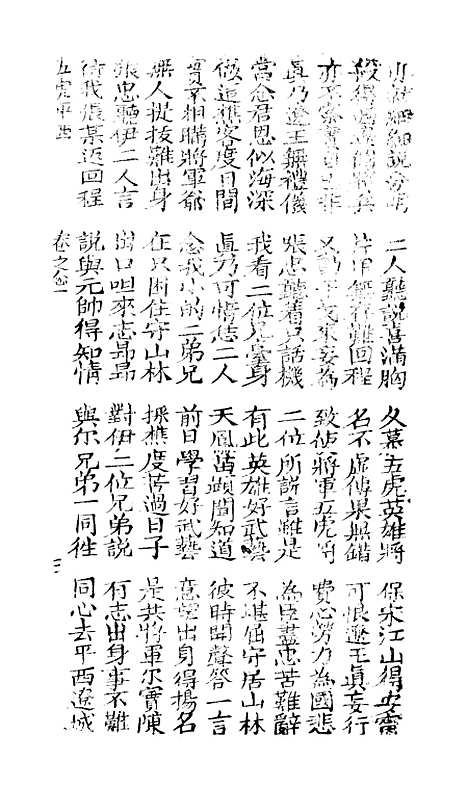 細細說分明 二人聽說喜滿胸 久慕五虎英雄將 保宋江山得安寧
殺 兵 片甲無存難回程 名不虛傳果無錯 可恨遼王真妄行
亦不 又 妄為 致使將軍五虎 費心勞力為國悲
真乃遼王無禮儀 張忠聽着只話機 二位所說言雖是 為臣盡忠苦難辭
當念君恩似海深 我看二位兄臺身 有此英雄好武藝 不堪屈守居山林
做這樵客度日間 真乃可惜恁二人 天鳳萬 聞知道 彼時開聲答一言
實不相瞞將軍爺 念我小的二弟兄 前日學習好武藝 意望出身得揚名
無人提拔難出身 在只困住守山林 採樵度苦過日子 是共將軍尔實陳
張忠聽伊二人言 出口呾來志昂昂 對伊二位兄弟說 有志出身事不難
待我張某返回程 說與元帥得知情 與尔兄弟一同往 同心去平西遼城
五虎平西 卷之 三